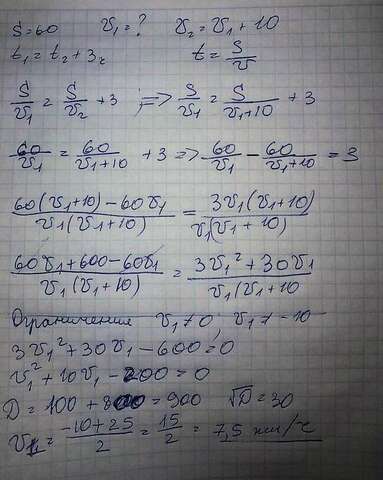 S=60 v₁=? v₂=v₁+10
t₁=t₂+3ч t=S/v
S/v₁=S/v₂+3 ;=> S/v₁=S/(v₁+10)+3
60/v₁=60/(v₁+10)+3=>60/v₁-60/(v₁+10)=3
(60(v₁+10)-60v₁)/(v₁(v₁+10))=(3v₁(v₁+10))/(v₁(v₁+10)
(60v₁+600-60v₁)/(v₁(v₁+10))=(3v₁²+30v₁)/(v₁(v₁+10
Ограничения v₁≠0; v₁≠-10
3v₁²+30v₁-600=0
v₁²+10v₁-200=0
D=100+800=900 √D=30
v₁=(-10+25)/2=15/2=7,5 км/ч